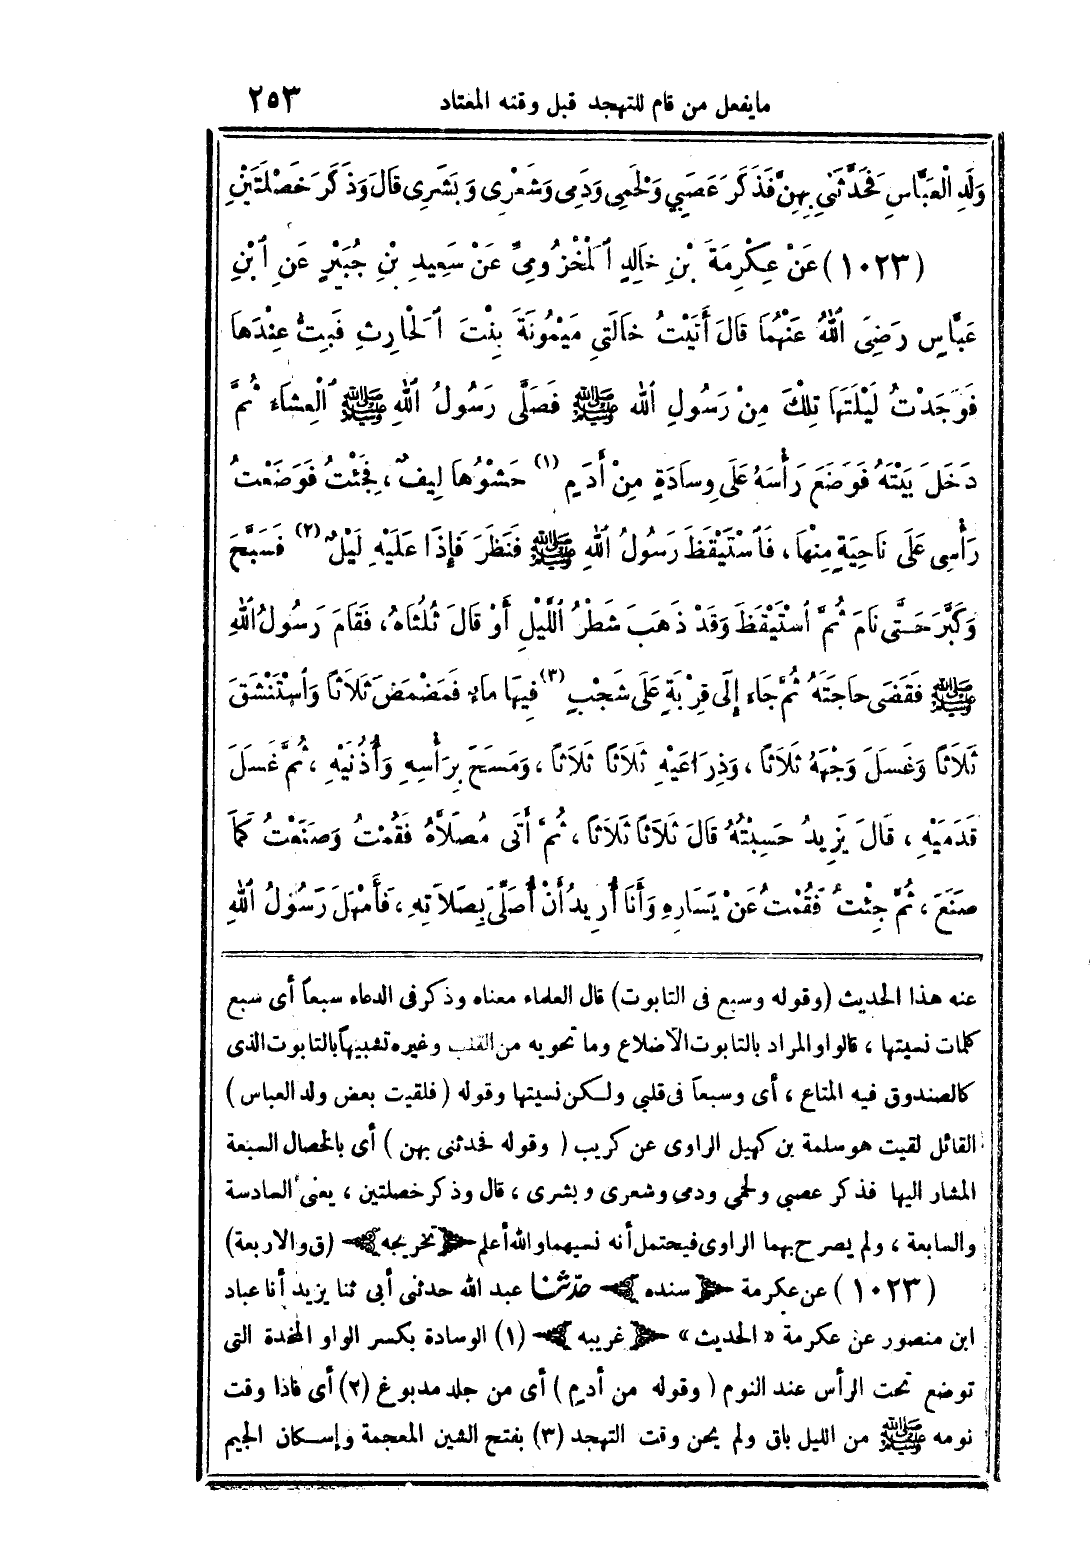 مايفعل من قام للتهجد قبل وقته المعتاد ٢٥٣
وَلَدِ الْعَبَّاسِ فَحَدَّثَنِي بِهِنَّ فَذَكَرَ عَصَبِي وَلَحْمِي وَدَمِي وَشَعْرِى وَبَشَرِى قَالَ وَذَكَرَ خَصْلَتَيْنِ
(١٠٢٣) عَنْ عِكْرِمَةَ بْنِ خَالِدٍ الْمَخْزُومِيِّ عَنْ سَعِيدِ بْنِ جُبَيْرٍ عَنِ ابْنِ
عَبَّاسٍ رَضِيَ اللهُ عَنْهُمَا قَالَ أَتَيْتُ خَالَتِي مَيْمُونَةَ بِنْتَ الْحَارِثِ فَبِتُّ عِنْدَهَا
فَوَجَدْتُ لَيْلَتَهَا تِلْكَ مِنْ رَسُولِ اللهِ ﷺ فَصَلَّى رَسُولُ اللهِ ﷺ الْعِشَاءَ ثُمَّ
دَخَلَ بَيْتَهُ فَوَضَعَ رَأْسَهُ عَلَى وِسَادَةٍ مِنْ أَدَمٍ (١) حَشْوُهَا لِيفٌ، فَجِئْتُ فَوَضَعْتُ
رَأْسِي عَلَى نَاحِيَةٍ مِنْهَا، فَاسْتَيْقَظَ رَسُولُ اللهِ ﷺ فَنَظَرَ فَإِذَا عَلَيْهِ لَيْلٌ (٢) فَسَبَّحَ
وَكَبَّرَ حَتَّى نَامَ ثُمَّ اسْتَيْقَظَ وَقَدْ ذَهَبَ شَطْرُ اللَّيْلِ أَوْ قَالَ ثُلُثَاهُ، فَقَامَ رَسُولُ اللهِ
ﷺ فَقَضَى حَاجَتَهُ ثُمَّ جَاءَ إِلَى قِرْبَةٍ عَلَى شَجْبٍ (٣) فِيهَا مَاءٌ فَمَضْمَضَ ثَلَاثًا وَاسْتَنْشَقَ
ثَلَاثًا وَغَسَلَ وَجْهَهُ ثَلَاثًا، وَذِرَاعَيْهِ ثَلَاثًا ثَلَاثًا، وَمَسَحَ بِرَأْسِهِ وَأُذُنَيْهِ، ثُمَّ غَسَلَ
قَدَمَيْهِ، قَالَ يَزِيدُ حَسِبْتُهُ قَالَ ثَلَاثًا ثَلَاثًا، ثُمَّ أَتَى مُصَلَّاهُ فَقُمْتُ وَصَنَعْتُ كَمَا
صَنَعَ، ثُمَّ جِئْتُ فَقُمْتُ عَنْ يَسَارِهِ وَأَنَا أُرِيدُ أَنْ أُصَلِّيَ بِصَلَاتِهِ، فَأَمْهَلَ رَسُولُ اللهِ
عنه هذا الحديث (وقوله وسبع فى التابوت) قال العلماء معناه وذكر فى الدعاء سبعاً أى سبع
كلمات نسيتها، قالوا والمراد بالتابوت الأضلاع وما تحويه من القلب وغيره تشبيهاً بالتابوت الذى
كالصندوق فيه المتاع، أى وسبعاً فى قلبي ولكن نسيتها وقوله (فلقيت بعض ولد العباس)
القائل لقيت هو سلمة بن كهيل الراوى عن كريب (وقوله فحدثنى بهن) أى بالخصال السبعة
المشار اليها فذكر عصبي ولحمي ودمي وشعرى وبشرى، قال وذكر خصلتين، يعنى السادسة
والسابعة، ولم يصرح بهما الراوى فيحتمل أنه نسيهما والله أعلم ﴿تخريجه﴾ (ق والاربعة)
(١٠٢٣) عن عكرمة ﴿سنده﴾ حدثنا عبد الله حدثنى أبى ثنا يزيد أنا عباد
ابن منصور عن عكرمة «الحديث» ﴿غريبه﴾ (١) الوسادة بكسر الواو المخدة التى
توضع تحت الرأس عند النوم (وقوله من أدم) أى من جلد مدبوغ (٢) أى فاذا وقت
نومه ﷺ من الليل باق ولم يحن وقت التهجد (٣) بفتح الشين المعجمة وإسكان الجيم